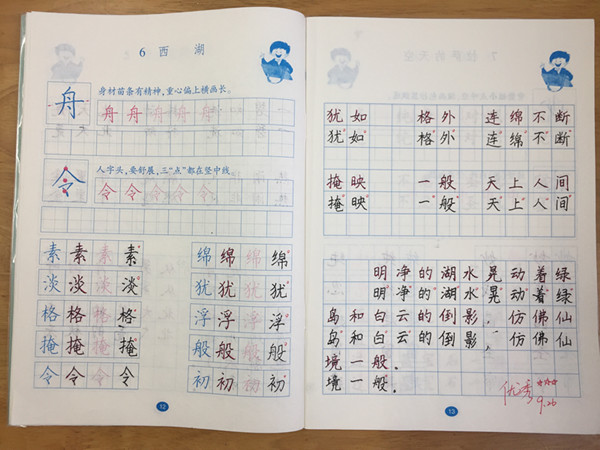 6 西 湖
身材苗条有精神，重心偏上横画长。
舟 舟 舟 舟 舟 舟
人字头，要舒展，三“点”都在竖中线。
令 令 令 令 令 令
素 素 素 素 绵 绵 绵 绵
淡 淡 淡 淡 犹 犹 犹 犹
格 格 格 格 浮 浮 浮 浮
掩 掩 掩 掩 般 般 般 般
令 令 令 令 初 初 初 初
12
犹如 格外 连绵不断
犹如 格外 连绵不断
掩映 一般 天上人间
掩映 一般 天上人间
明净的湖水晃动着绿
明净的湖水晃动着绿
岛和白云的倒影，仿佛仙
岛和白云的倒影，仿佛仙
境一般。
境一般。
优秀 ☆☆☆
9.26
13